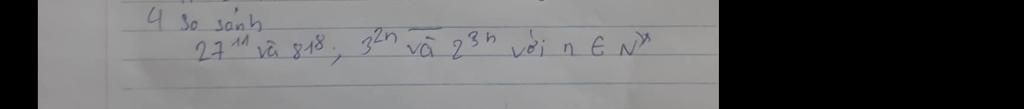 4 So sánh
27¹¹ và 81⁸; 3²ⁿ và 2³ⁿ với n ∈ N*